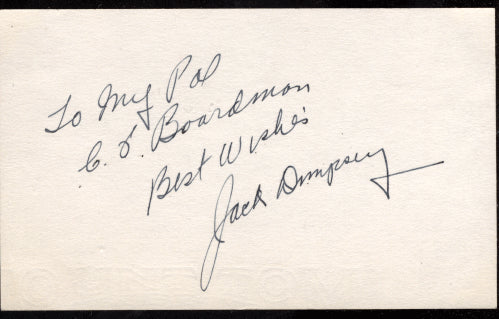 To My Pal
C. F. Boardman
Best Wishes
Jack Dempsey